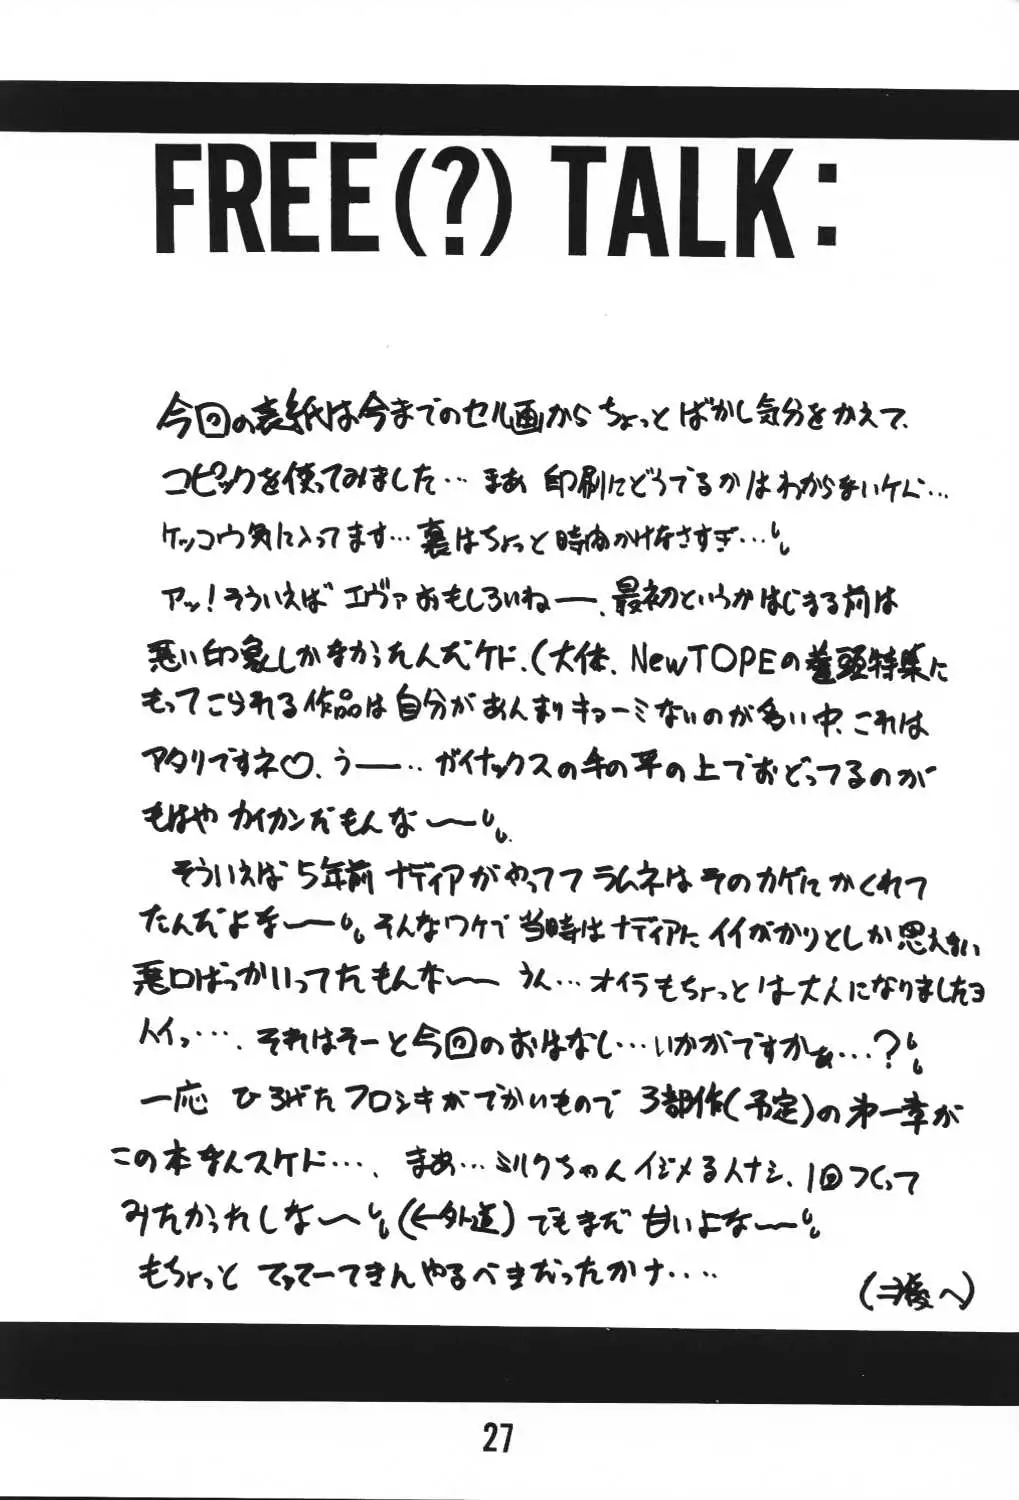 FREE(?) TALK:
今回の表紙は今までのセル画からちょっとばかし気分をかえて、
コピックを使ってみました… まあ 印刷にどうでるかはわからまいケド…
ケッコウ気に入ってます… 裏はちょっと時間かけなさすぎ…
アッ!そういえば エヴァおもしろいねー、最初というかはじまる前は
悪い印象しかなかったんだケド、(大体、NewTOPEの巻頭特集に
もってこられる作品は自分があんまりキョーミないのが多い中、これは
アタリですネ♡、うー… ガイナックスの手の平の上でおどってるのが
もはや カイカンだもんなー
そういえば 5年前 ナディアがやってて ラムネは そのカゲにかくれて
たんだよなー そんなワケで 当時はナディアに イイがかりとしか思えない
悪口ばっかいってたもんなー うん… オイラもちょっとは大人になりましたヨ
ハイっ…. それはそーと今回のおはなし… いかがですかぁ…?
一応 ひろげたフロシキがでかいもので 3部作(予定)の第一章が
この本なんスケド…、 まあ… ミルクちゃん イジメるハナシ、1回つくって
みたかったしなー (←外道) でもまだ 甘いよなー
もちょっと てってーてきんやるべきだったかナ….
(⇒後へ)
27